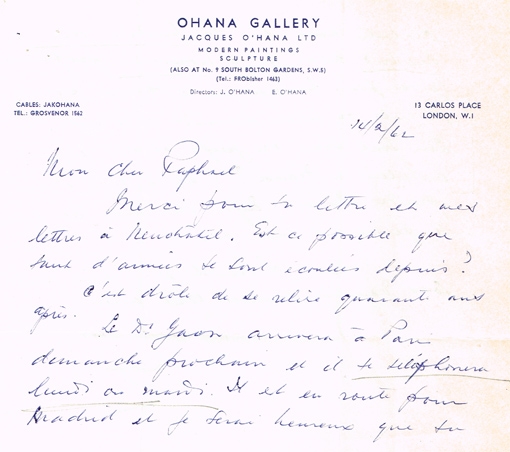 OHANA GALLERY
JACQUES O'HANA LTD
MODERN PAINTINGS
SCULPTURE
(ALSO AT No. 9 SOUTH BOLTON GARDENS, S.W.5)
(Tel.: FRObisher 1463)
Directors: J. O'HANA E. O'HANA
CABLES: JAKOHANA
TEL.: GROSVENOR 1562
13 CARLOS PLACE
LONDON, W.1
14/2/62
Mon cher Raphael
Merci pour ta lettre et mes
lettres à Neuchatel. Est ce possible que
tant d'années se sont écoulées depuis?
C'est drôle de se relire quarante ans
après.
Le Dr Gaon arrivera à Paris
demanche prochain et il te téléphonera
lundi ou mardi. Il est en route pour
Madrid et je serai heureux que tu